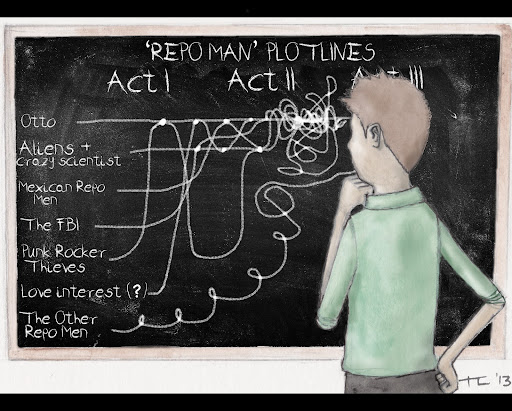 'REPO MAN' PLOTLINES
Act I Act II Act III
Otto
Aliens +
crazy scientist
Mexican Repo
Men
The FBI
Punk Rocker
Thieves
Love interest (?)
The Other
Repo Men
TC '13